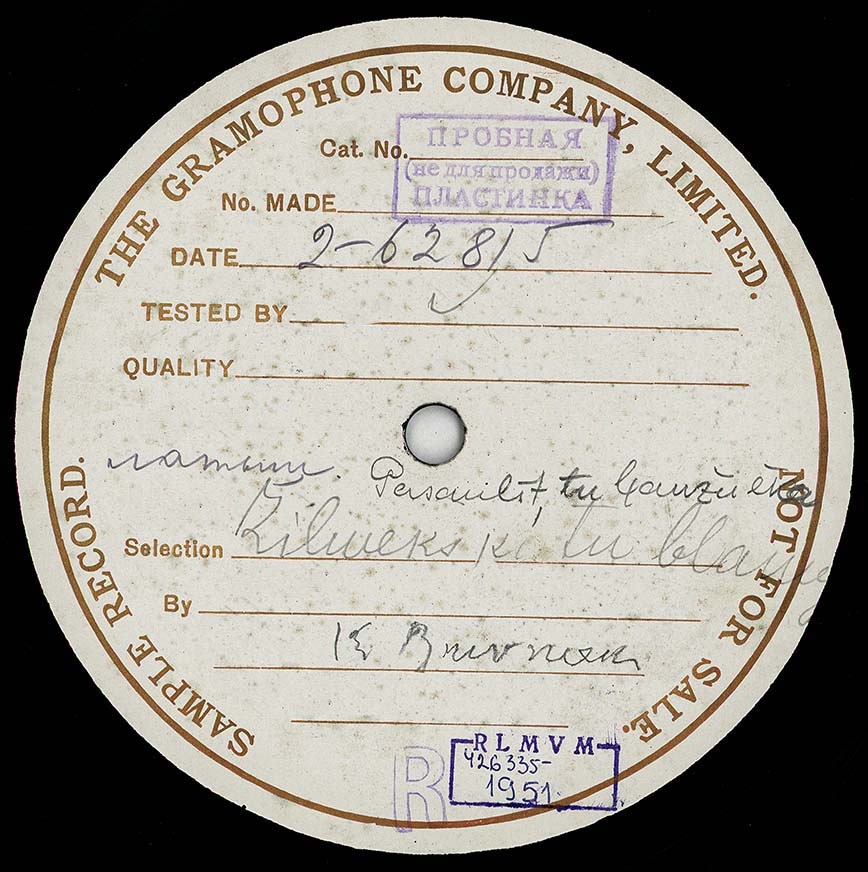 THE GRAMOPHONE COMPANY, LIMITED.
Cat. No.
ПРОБНАЯ
(не для продажи)
ПЛАСТИНКА
No. MADE
DATE 2-62815
TESTED BY
QUALITY
SAMPLE RECORD.
NOT FOR SALE.
латыш.
tu
Selection tu
By
R
RLMVM
426335-
1951.